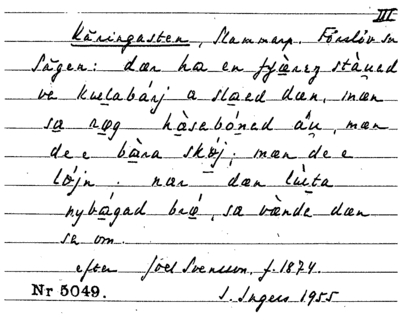 III
Käringasten, Slammarp. Förslöv sn
Sägen: dær ha en fjæ̀reŋ stàned
ve kulabárj a slaed dæn, mæn
sa ræg hàsabóned áu, mæn
de e bàra skǿj; mæn de e
lǿjn. nær dæn lùta
nybágad brǿ, sa vànde dæn
sa om.
efter Joel Svensson, f. 1874.
Nr 5049. S. Ingers 1955